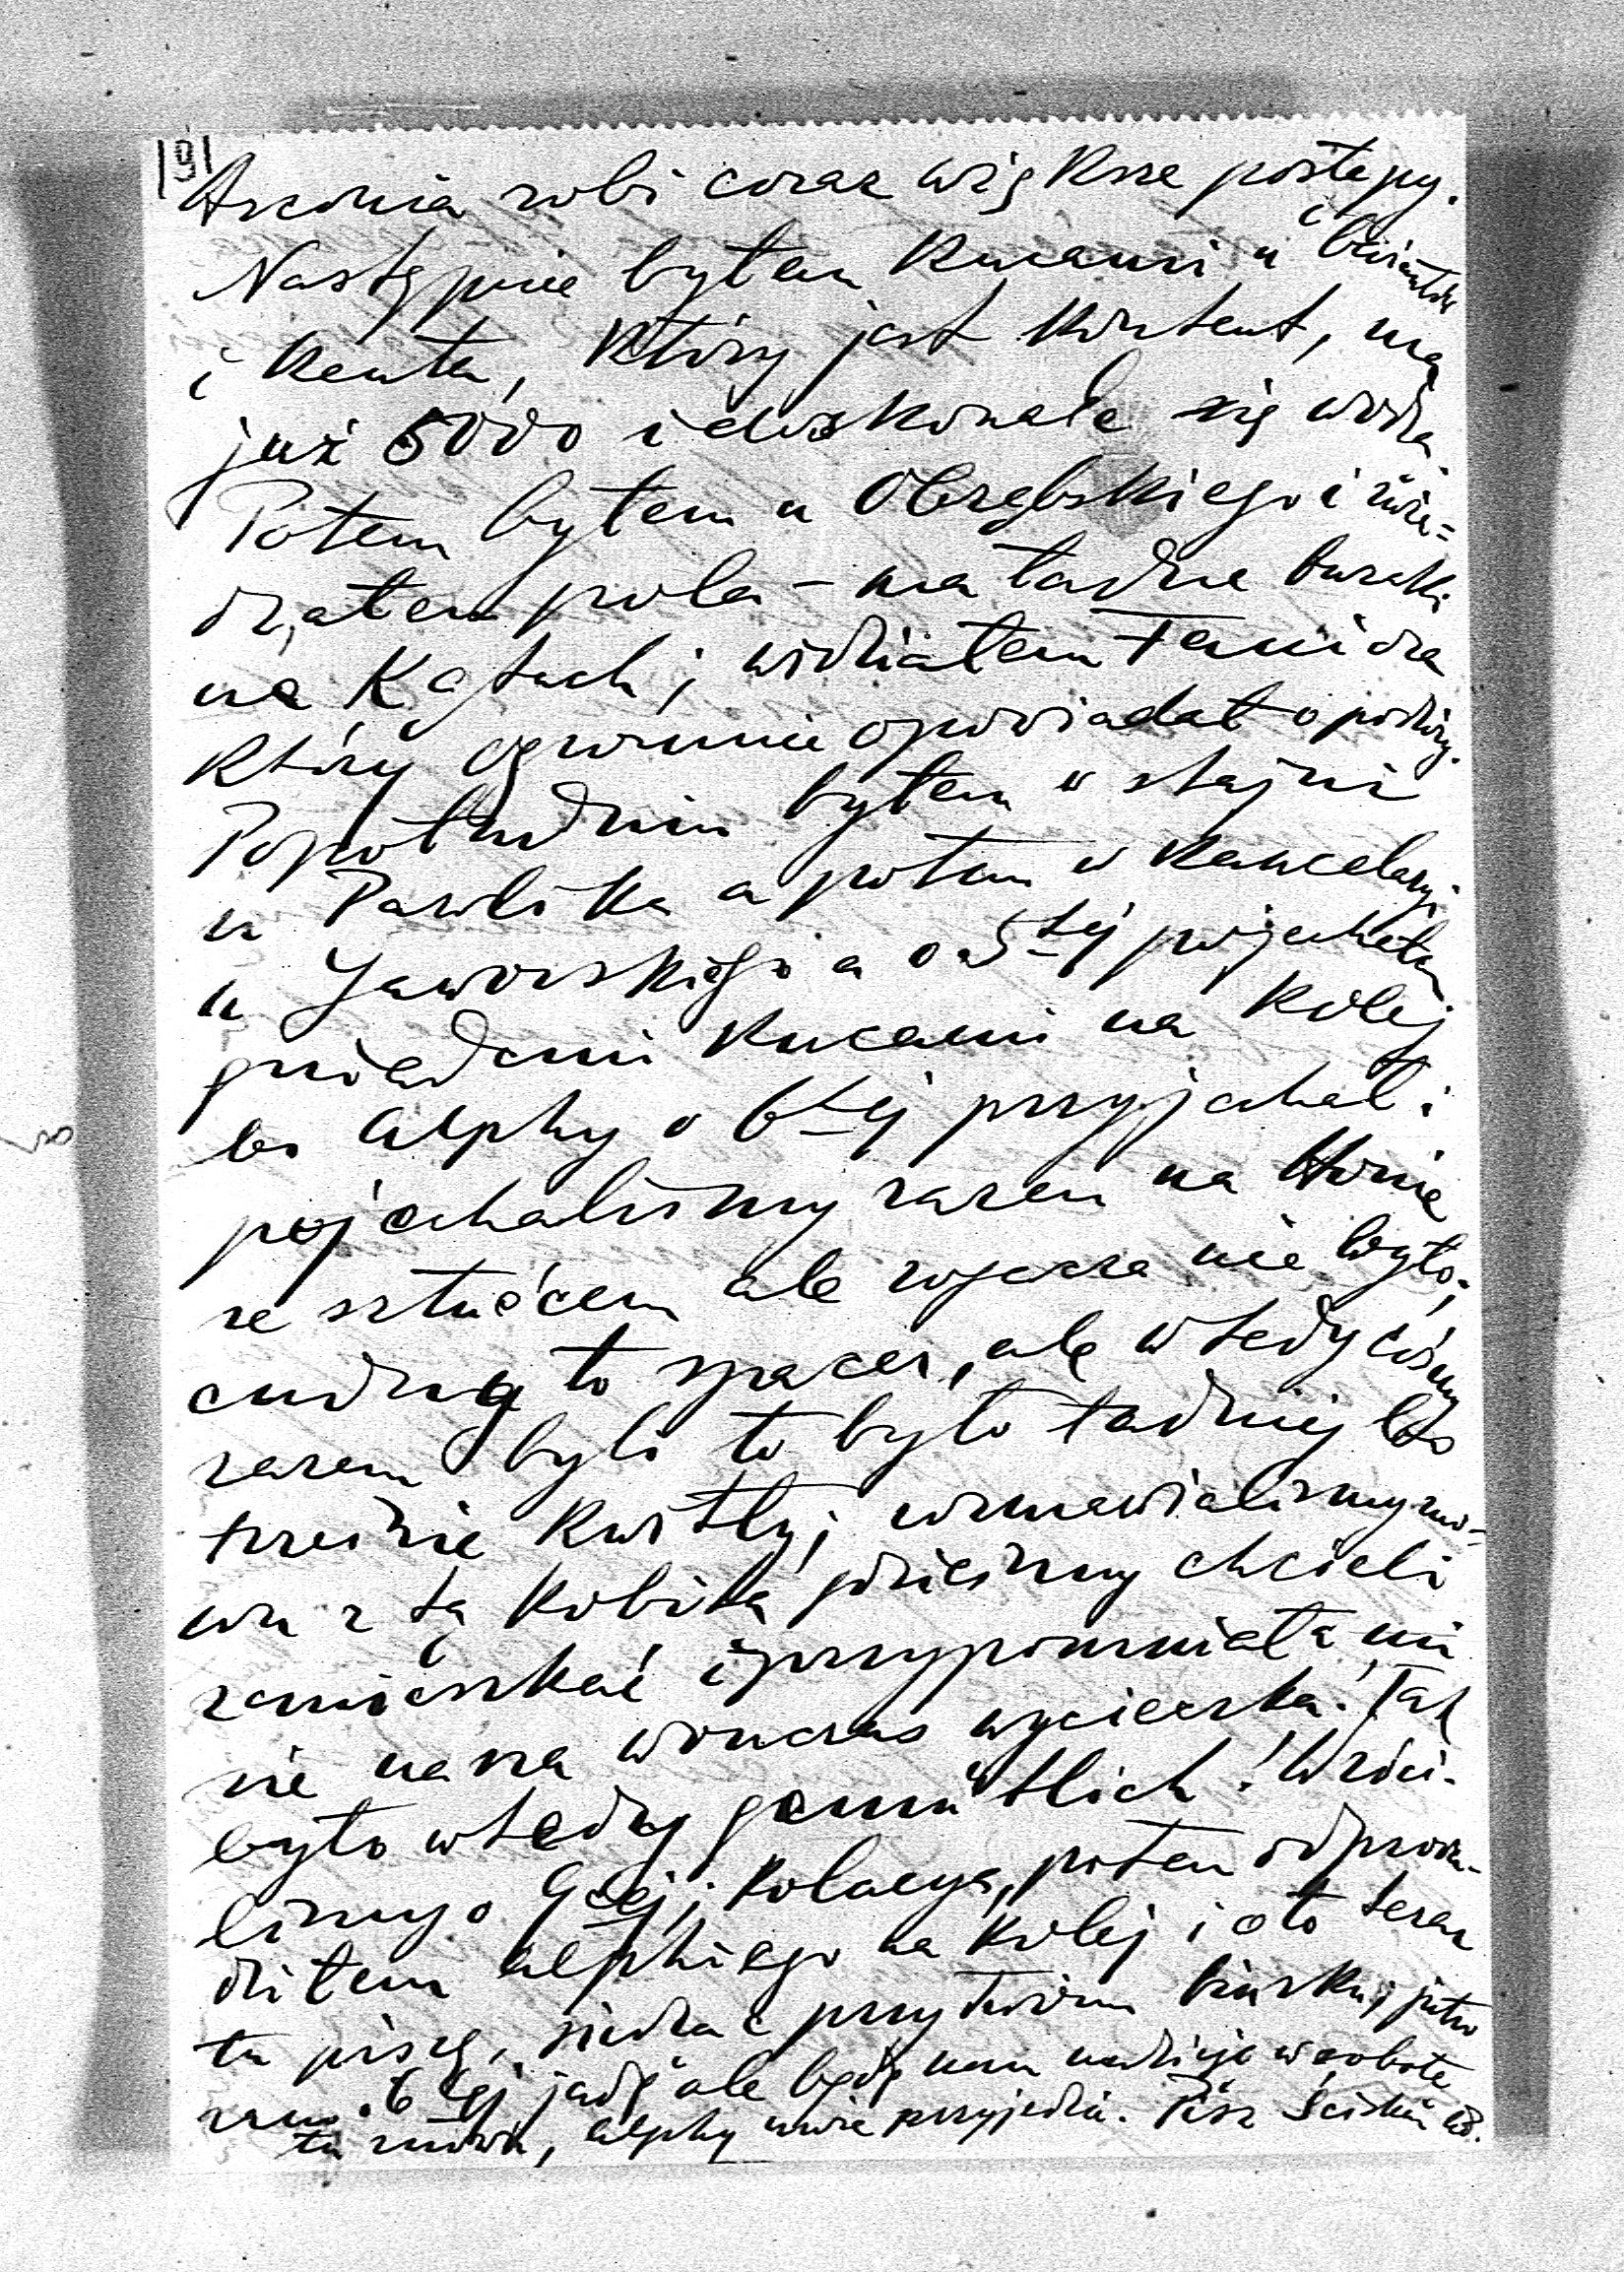 |9|
Asconia robi coraz większe postępy.
Następnie byłem Kucami u i
i Kenta, który jest Kontent, ma
już 5000 i doskonale się wodzi.
Potem byłem u Obrębskiego i zwie=
dzałem pola – ma ładne buraki
na Kątach; widziałem
który ogromnie opowiadał o podróży.
Popołudniu byłem w stajni
u Pawlika a potem w Kancelaryi
u Jaworskiego a o 5tej pojechałem
gniademi Kucami na Kolej
bo Alphy o 6tej przyjechał i
pojechaliśmy razem na
ze sztućcem ale rogacza nie było;
cudny to spacer, ale wtedy cośmy
razem byli to było ładniej bo
trześnie Kwitły; wzmawialiśmy zno=
wu z tą Kobitą gdzieśmy chcieli
zamieszkać i przypomniała mi
się nasza wonczas wycieczka! Tak
było wtedy gemütlich! Wróci-
liśmy o 9tej; Kolacya, potem odprowa-
dziłem Alphiego na Kolej i oto teraz
tu piszę, siedząc przy Twoim biurku; jutro
rano o 6tej jadę ale będę mam nadzieję w sobotę
tu znowu, Alphy może przyjedzie. Pisz Ściskam